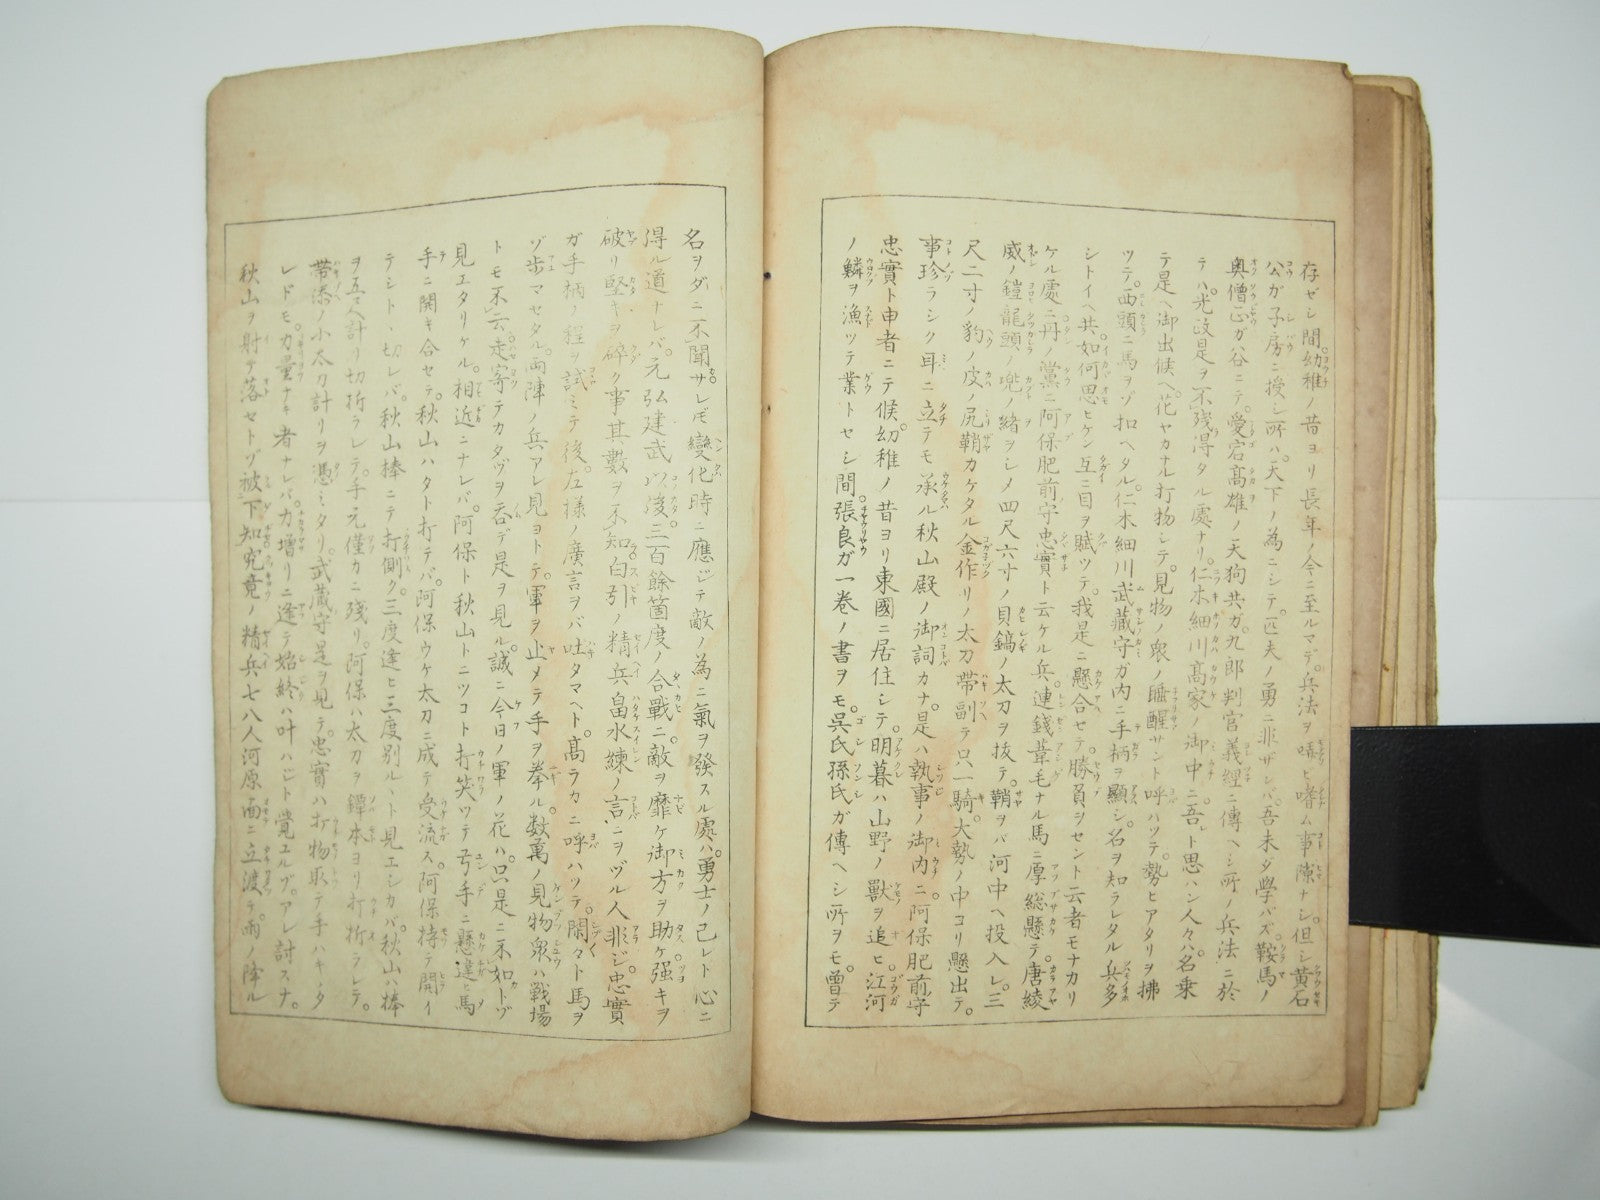 存ゼシ間。幼稚ノ昔ヨリ長年ノ今ニ至ルマデ。兵法ヲ嗜ム事隙ナシ。但シ黄石
公ガ子房ニ授シ所ハ。天下ノ為ニシテ。匹夫ノ勇ニ非ザレバ。吾未ダ學バズ。鞍馬ノ
奥僧正ガ谷ニテ。愛宕高雄ノ天狗共ガ。九郎判官義經ニ傳ヘシ所ノ兵法ニ於
テハ。光政是ヲ不残得タル處ナリ。仁木細川高家ノ御中ニ。吾ト思ハン人々ハ。名乗
テ是ヘ御出候ヘ。花ヤカナル打物シテ。見物ノ衆ノ睡醒サント呼ハツテ。勢ヒアタリヲ拂
ツテ。西頭ニ馬ヲゾ扣ヘタル。仁木細川武藏守ガ内ニ手柄ヲ顯シ。名ヲ知ラレタル兵多
シトイヘ共。如何思ヒケン。互ニ目ヲ賦ツテ。我是ニ懸合セテ。勝負ヲセント云者モナカリ
ケル處ニ。丹ノ黨ニ阿保肥前守忠實ト云ケル兵。連錢葦毛ナル馬ニ厚總懸テ。唐綾
威ノ鎧龍頭ノ兜ノ緒ヲシメ四尺六寸ノ貝鎬ノ太刀ヲ抜テ。鞘ヲバ河中ヘ投入レ。三
尺二寸ノ豹ノ皮ノ尻鞘カケタル金作リノ太刀帯副テ只一騎。大勢ノ中ヨリ懸出テ。
事珍ラシク耳ニ立テモ承ル秋山殿ノ御詞カナ。是ハ執事ノ御内ニ。阿保肥前守
忠實ト申者ニテ候。幼稚ノ昔ヨリ東國ニ居住シテ。明暮ハ山野ノ獸ヲ追ヒ。江河
ノ鱗ヲ漁ツテ業トセシ間。張良ガ一巻ノ書ヲモ。呉氏孫氏ガ傳ヘシ所ヲモ。曽テ
名ヲダニ不聞サレ𪜈。變化時ニ應ジテ敵ノ為ニ氣ヲ發スル處ハ。勇士ノ己レト心ニ
得ル道ナレバ。元弘建武以後三百餘箇度ノ合戰ニ。敵ヲ靡ケ御方ヲ助ケ。強キヲ
破リ堅キヲ碎ク事其數ヲ不知。白引ノ精兵畠水練ノ言ニヲヅル人非ジ。忠實
ガ手柄ノ程ヲ試ミテ後。左様ノ廣言ヲバ吐タマヘト。高ラカニ呼ハツテ。閑々ト馬ヲ
ゾ歩マセタル。両陣ノ兵アレ見ヨトテ。軍ヲ止メテ手ヲ拳ル。数萬ノ見物衆ハ戦場
トモ不云。走寄テカタヅヲ呑デ是ヲ見ル。誠ニ今日ノ軍ノ花ハ。只是ニ不如トゾ
見エタリケル。相近ニナレバ。阿保ト秋山トニツコト打笑ツテ弓手ニ懸違ヒ馬
手ニ開キ合セテ。秋山ハタト打テバ。阿保ウケ太刀ニ成テ受流ス。阿保持テ開イ
テシトヽ切レバ。秋山棒ニテ打側ク。三度逢ヒ三度別ルヽト見エシカバ。秋山ハ棒
ヲ五尺計リ切折ラレテ。手元僅カニ残リ。阿保ハ太刀ヲ鐔本ヨリ打折ラレテ。
帯添ノ小太刀計リヲ憑ミタリ。武藏守是ヲ見テ。忠實ハ打物取テ手ハキヽタ
レドモ。力量ナキ者ナレバ。力増リニ逢テ始終ハ叶ハジト覚ルゾ。アレ討スナ。
秋山ヲ射テ落セトゾ被下知。究竟ノ精兵七八人河原面ニ立渡テ。雨ノ降ル